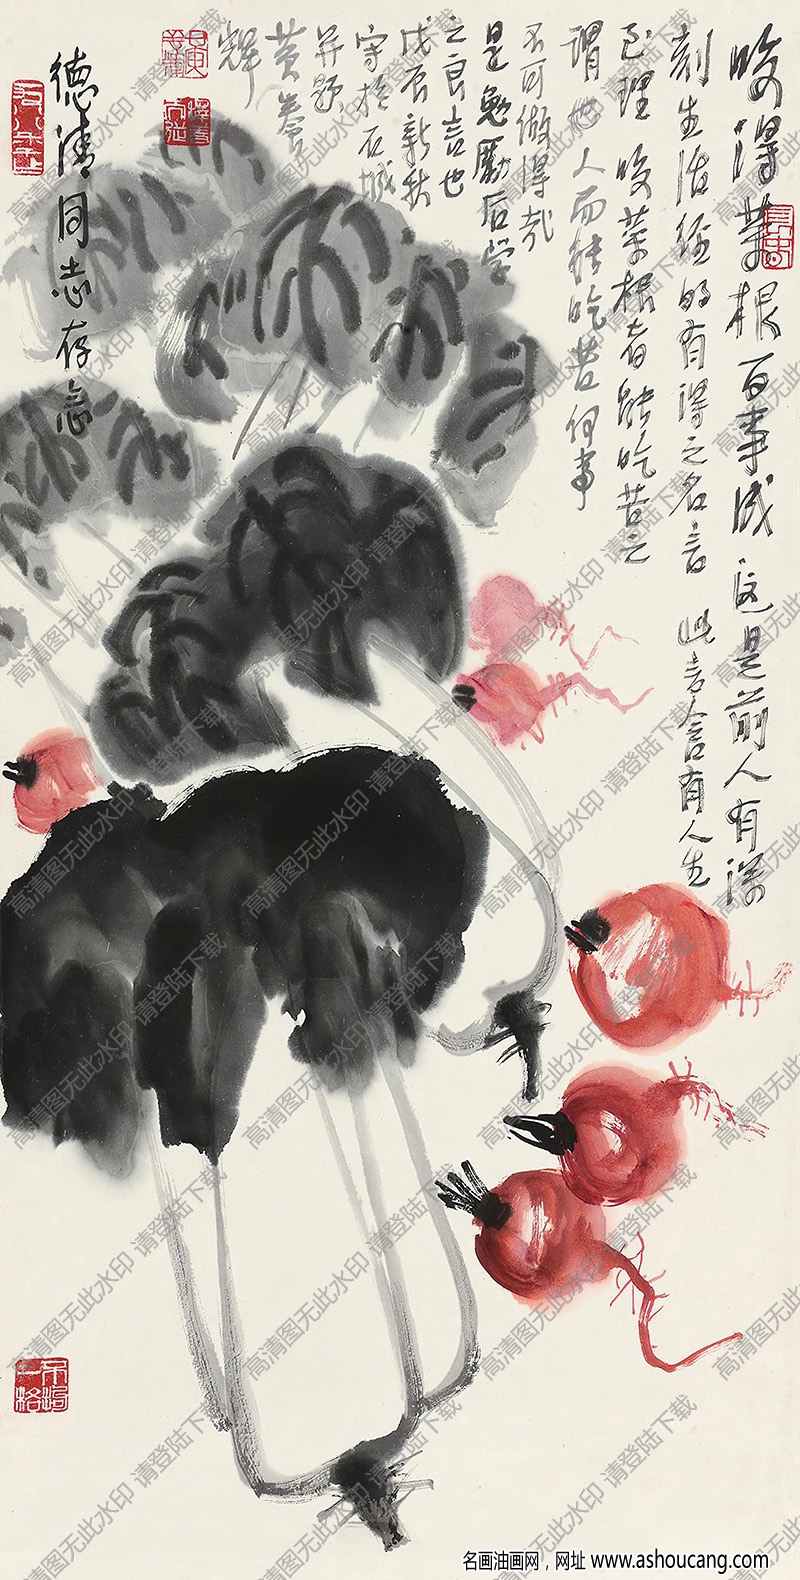 咬得菜根百事成 这是前人有深
刻生活经的有得之名言 此言含有人生
至理 咬菜根者能吃苦之
谓也 人而能吃苦何事
不可做得哉
是勉励后学
之良言也
戊辰新秋
守於石城
并题
黄养
辉
德清同志存念
不拘一格
高清图无此水印 请登陆下载
名画油画网，网址 www.ashoucang.com